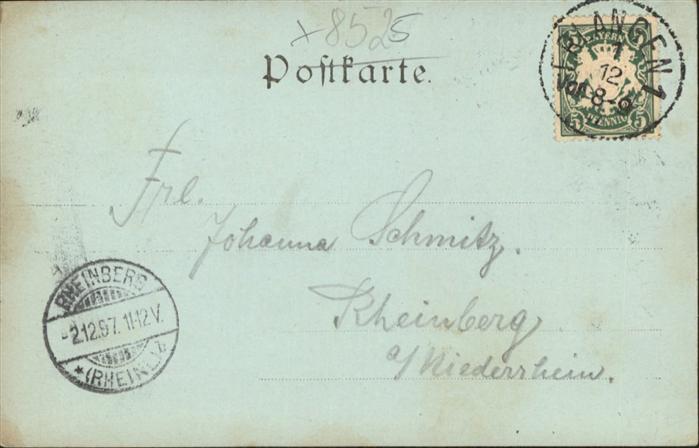 x 8525
Postkarte.
BAYERN
5 PFENNIG 5
ERLANGEN 1
1
12
Vor. 8-9
Frl.
Johanna Schmitz.
Rheinberg
a/Niederrhein.
RHEINBERG
2.12.97. 11-12 V.
* (RHEINL.)